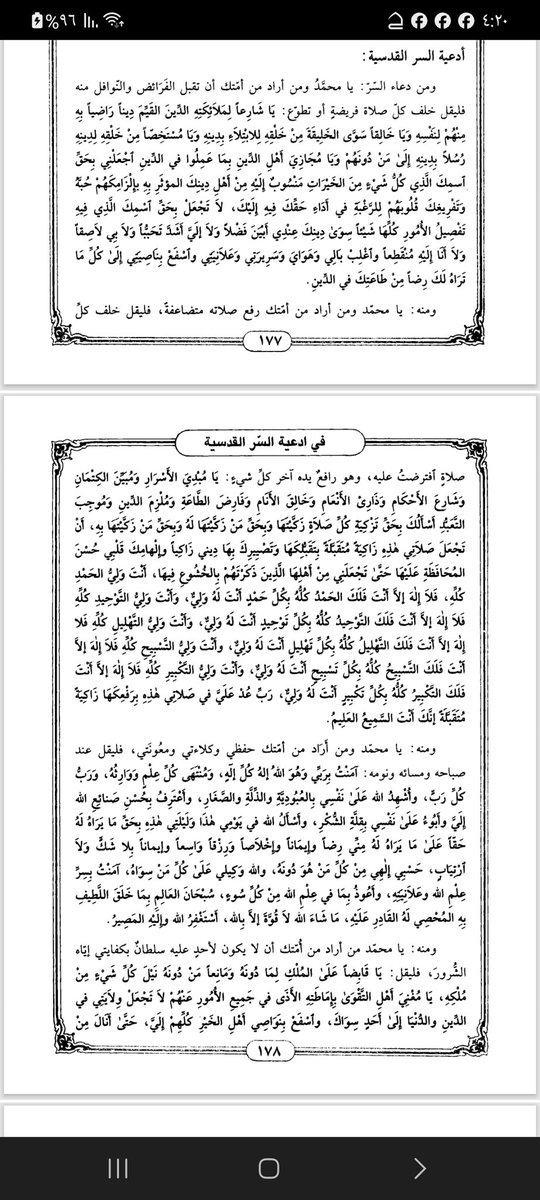 ٤:٢٠
%٩٦
أدعية السر القدسية:
ومن دعاء السّرّ: يا محمَّدُ ومن أراد من أمّتك أن تقبل الفَرَائض والنّوافل منه
فليقل خلف كلّ صلاة فريضةٍ أو تطوّع: يَا شَارِعاً لِمَلَائِكَتِهِ الدِّينَ القَيِّمَ دِيناً رَاضِياً بِهِ
مِنْهُمْ لِنَفْسِهِ وَيَا خَالِقاً سَوَّى الخَلِيقَةَ مِنْ خَلْقِهِ لِلابْتِلَاءِ بِدِينِهِ وَيَا مُسْتَخِصّاً مِنْ خَلْقِهِ لِدِينِهِ
رُسُلاً بِدِينِهِ إِلىٰ مَنْ دُونَهُمْ وَيَا مُجَازِيَ أَهْلِ الدِّينِ بِمَا عَمِلُوا في الدِّينِ اجْعَلْنِي بِحَقِّ
اسمِكَ الَّذِي كُلُّ شَيْءٍ مِنَ الخَيْرَاتِ مَنْسُوبٌ إِلَيْهِ مِنْ أَهْلِ دِينِكَ المُؤثِرِ بِهِ بِإلْزَامِكَهُمْ حُبَّهُ
وَتَفْرِيغِكَ قُلُوبَهُمْ لِلرَّغْبَةِ في أَدَاءِ حَقِّكَ فِيهِ إِلَيْكَ، لَا تَجْعَلْ بِحَقِّ اسْمِكَ الَّذي فِيهِ
تَفْصِيلُ الأُمُورِ كُلِّهَا شَيْئاً سِوَىٰ دِينِكَ عِنْدِي أَبْيَنَ فَضْلاً وَلاَ إِلَيَّ أَشَدَّ تَحَبُّباً وَلَا بِي لاصِقاً
وَلَا أَنَا إِلَيْهِ مُنْقَطِعاً وَاغْلِبْ بَالِي وَهَوَايَ وَسَرِيرَتي وَعَلَانِيَتِي وَاسْفَعْ بِنَاصِيَتِي إِلىٰ كُلِّ مَا
تَرَاهُ لَكَ رِضاً مِنْ طَاعَتِكَ في الدِّينِ.
ومنه: يا محمّد ومن أراد من أمّتك رفع صلاته متضاعفةً، فليقل خلف كلّ
١٧٧
في ادعية السّر القدسية
صلاةٍ افترضتُ عليه، وهو رافعٌ يده آخر كلّ شيءٍ: يَا مُبْدِيَ الأَسْرَارِ وَمُبَيِّنَ الكِتْمَانِ
وَشَارِعَ الأَحْكَامِ وَذَارِئَ الأَنْعَامِ وَخَالِقَ الأَنَامِ وَفَارِضَ الطَّاعَةِ وَمُلْزِمَ الدِّينِ وَمُوجِبَ
التَّعَبُّدِ أَسْأَلُكَ بِحَقِّ تَزْكِيَةِ كُلِّ صَلَاةٍ زَكَّيْتَهَا وَبِحَقِّ مَنْ زَكَّيْتَهَا لَهُ وَبِحَقِّ مَنْ زَكَّيْتَهَا بِهِ، أَنْ
تَجْعَلَ صَلَاتي هٰذِهِ زَاكِيَةً مُتَقَبَّلَةً بِتَقَبُّلِكَهَا وَتَصْيِيرِكَ بِهَا دِيني زَاكِياً وَإِلهَامِكَ قَلْبِي حُسْنَ
المُحَافَظَةِ عَلَيْهَا حَتَّىٰ تَجْعَلَنِي مِنْ أَهْلِهَا الَّذِينَ ذَكَرْتَهُمْ بِالخُشُوعِ فِيهَا، أَنْتَ وَلِيُّ الحَمْدِ
كُلِّهِ، فَلَا إِلٰهَ إلاَّ أَنْتَ فَلَكَ الحَمْدُ كُلُّهُ بِكُلِّ حَمْدٍ أَنْتَ لَهُ وَلِيٌّ، وَأَنْتَ وَلِيُّ التَّوْحِيدِ كُلِّهِ
فَلَا إِلٰهَ إلاَّ أَنْتَ فَلَكَ التَّوْحِيدُ كُلُّهُ بِكُلِّ تَوْحِيدٍ أَنْتَ لَهُ وَلِيٌّ، وَأَنْتَ وَلِيُّ التَّهْلِيلِ كُلِّهِ فَلا
إِلٰهَ إلاَّ أَنْتَ فَلَكَ التَّهْلِيلُ كُلُّهُ بِكُلِّ تَهْلِيلٍ أَنْتَ لَهُ وَلِيٌّ، وأَنْتَ وَلِيُّ التَّسْبِيحِ كُلِّهِ فَلَا إِلٰهَ إلاَّ
أَنْتَ فَلَكَ التَّسْبِيحُ كُلُّهُ بِكُلِّ تَسْبِيحٍ أَنْتَ لَهُ وَلِيٌّ، وَأَنْتَ وَلِيُّ التَّكْبِيرِ كُلِّهِ فَلَا إِلٰهَ إلاَّ أَنْتَ
فَلَكَ التَّكْبِيرُ كُلُّهُ بِكُلِّ تَكْبِيرٍ أَنْتَ لَهُ وَلِيٌّ، رَبِّ عُدْ عَلَيَّ في صَلَاتي هٰذِهِ بِرَفْعِكَهَا زَاكِيَةً
مُتَقَبَّلَةً إِنَّكَ أَنْتَ السَّمِيعُ العَلِيمُ.
ومنه: يا محمّد ومن أَرَاد من أمّتك حفظي وكلاءتي ومعُونَتي، فليقل عند
صباحه ومسائه ونومه: آمَنْتُ بِرَبِّي وَهُوَ اللهُ إِلهُ كُلِّ إِلٰهٍ، وَمُنْتَهَىٰ كُلِّ عِلْمٍ وَوَارِثُهُ، وَرَبُّ
كُلِّ رَبٍّ، وأُشْهِدُ الله عَلَىٰ نَفْسِي بِالعُبُودِيَّةِ وَالذِّلَّةِ وَالصَّغَارِ، وَأَعْتَرِفُ بِحُسْنِ صَنَائِعِ الله
إِلَيَّ وَأَبُوءُ عَلَىٰ نَفْسِي بِقِلَّةِ الشُّكْرِ، وَأَسْأَلُ الله في يَوْمِي هٰذَا وَلَيْلَتِي هٰذِهِ بِحَقِّ مَا يَرَاهُ لَهُ
حَقّاً عَلَىٰ مَا يَرَاهُ لَهُ مِنِّي رِضاً وَإِيمَاناً وَإِخْلَاصاً وَرِزْقاً وَاسِعاً وإيماناً بِلا شَكٍّ وَلاَ
ارْتِيَابٍ، حَسْبِي إِلٰهِي مِنْ كُلِّ مَنْ هُوَ دُونَهُ، وَالله وَكِيلي عَلَىٰ كُلِّ مَنْ سِوَاهُ، آمَنْتُ بِسِرِّ
عِلْمِ الله وَعَلَانِيَتِهِ، وَأَعُوذُ بِمَا في عِلْمِ الله مِنْ كُلِّ سُوءٍ، سُبْحَانَ العَالِمِ بِمَا خَلَقَ اللَّطِيفِ
بِهِ المُحْصِي لَهُ القَادِرِ عَلَيْهِ، مَا شَاءَ اللهُ لَا قُوَّةَ إلاَّ بِالله، أَسْتَغْفِرُ الله وَإِلَيْهِ المَصِيرُ.
ومنه: يا محمّد من أراد من أمّتك أن لا يكون لأحدٍ عليه سلطانٌ بكفايتي إيّاه
الشُّرورَ، فليقل: يَا قَابِضاً عَلَىٰ المُلْكِ لِمَا دُونَهُ وَمَانِعاً مَنْ دُونَهُ نَيْلَ كُلِّ شَيْءٍ مِنْ
مُلْكِهِ، يَا مُغْنِيَ أَهْلِ التَّقْوَىٰ بِإِمَاطَتِهِ الأَذَىٰ في جَمِيعِ الأُمُورِ عَنْهُمْ لَا تَجْعَلْ وِلَايَتِي في
الدِّينِ وَالدُّنْيَا إِلىٰ أَحَدٍ سِوَاكَ، وَاسْفَعْ بِنَوَاصِي أَهْلِ الخَيْرِ كُلِّهِمْ إِلَيَّ، حَتَّىٰ أَنَالَ مِنْ
١٧٨